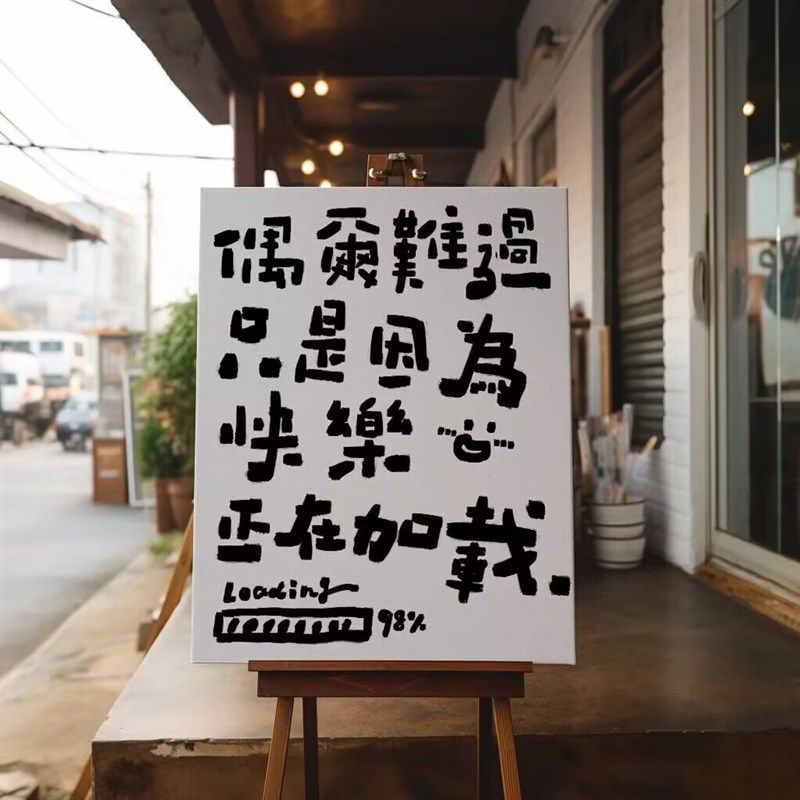 偶爾難過
只是因為
快樂
正在加載.
Loading
98%